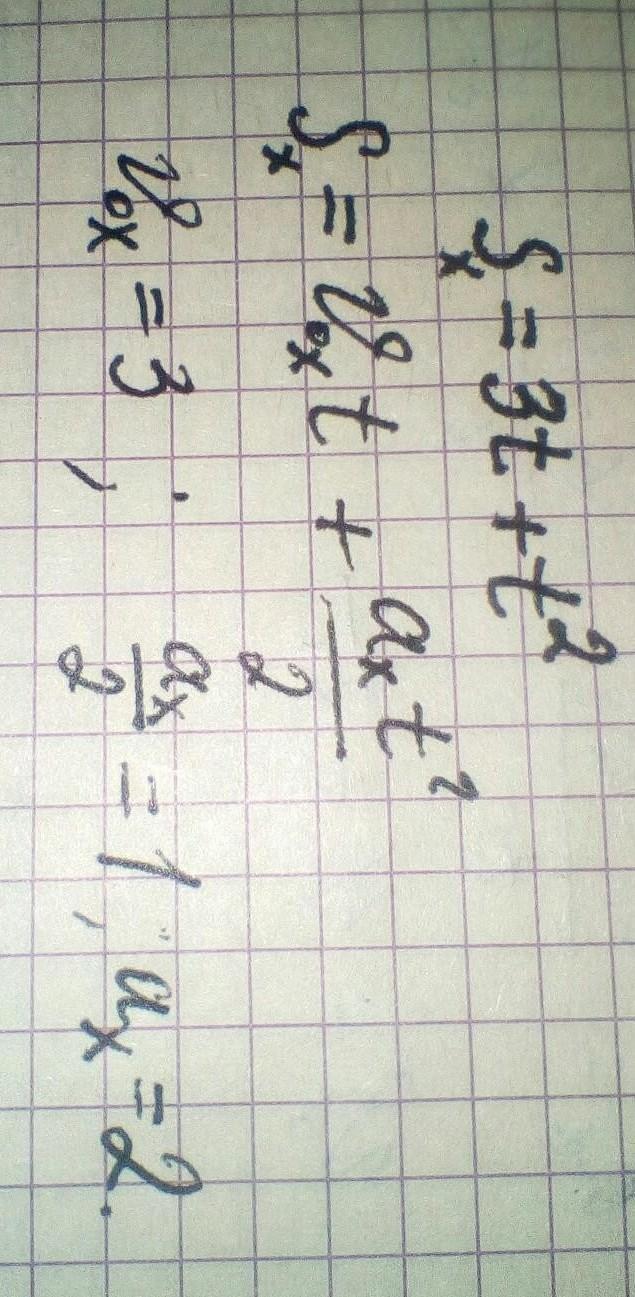 Sₓ = 3t + t²
Sₓ = v₀ₓt + aₓt²/2
v₀ₓ = 3 ; aₓ/2 = 1 ; aₓ = 2.